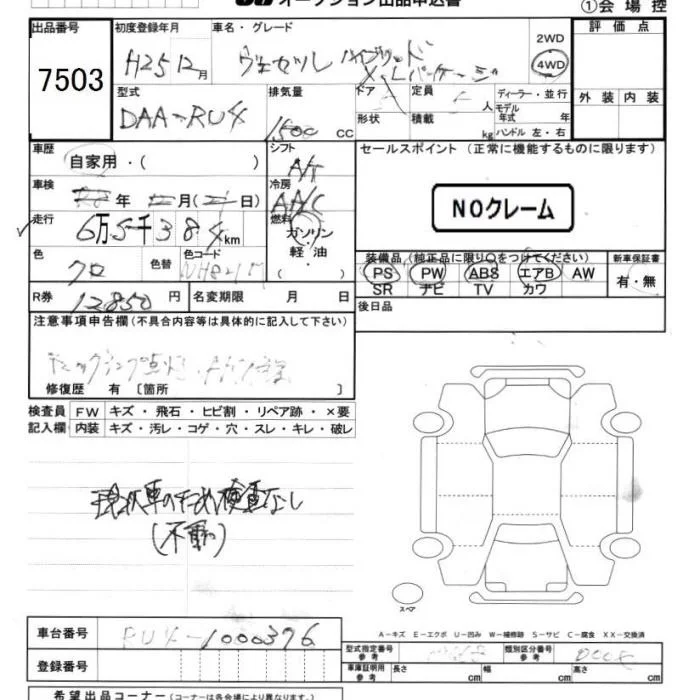 オークション出品申込書
①会場控
出品番号
7503
初度登録年月
H25 12月
車名・グレード
ヴェゼル ハイブリッド
X・Lパッケージ
2WD
4WD
評価点
外装 内装
型式
DAA-RU4
排気量
1500 CC
ドア
定員 人
形状
積載 kg
ディーラー・並行
モデル年式 年
ハンドル 左・右
車歴
自家用・( )
シフト
A/T
セールスポイント (正常に機能するものに限ります)
NOクレーム
車検
年 月( 日)
冷房
A/C
走行
6万5千384km
燃料
ガソリン
軽・油
( )
色
クロ
色替
色コード
装備品(純正品に限り○をつけてください)
PS PW ABS エアB AW
SR ナビ TV カワ
新車保証書
有・無
R券
12850円
名変期限 月 日
後日品
注意事項申告欄(不具合内容等は具体的に記入して下さい)
修復歴 有〔箇所 〕
検査員 FW キズ・飛石・ヒビ割・リペア跡・×要
記入欄 内装 キズ・汚レ・コゲ・穴・スレ・キレ・破レ
現状車のため検査なし
(不動)
スペア
A-キズ E-エクボ U-凹み W-補修跡 S-サビ C-腐食 XX-交換済
車台番号
RU4-1000376
登録番号
型式指定番号 参考
類別区分番号 参考
車庫証明用 参考 長さ cm 幅 cm 高さ cm
希望出品コーナー(コーナーは各会場により異なります。)